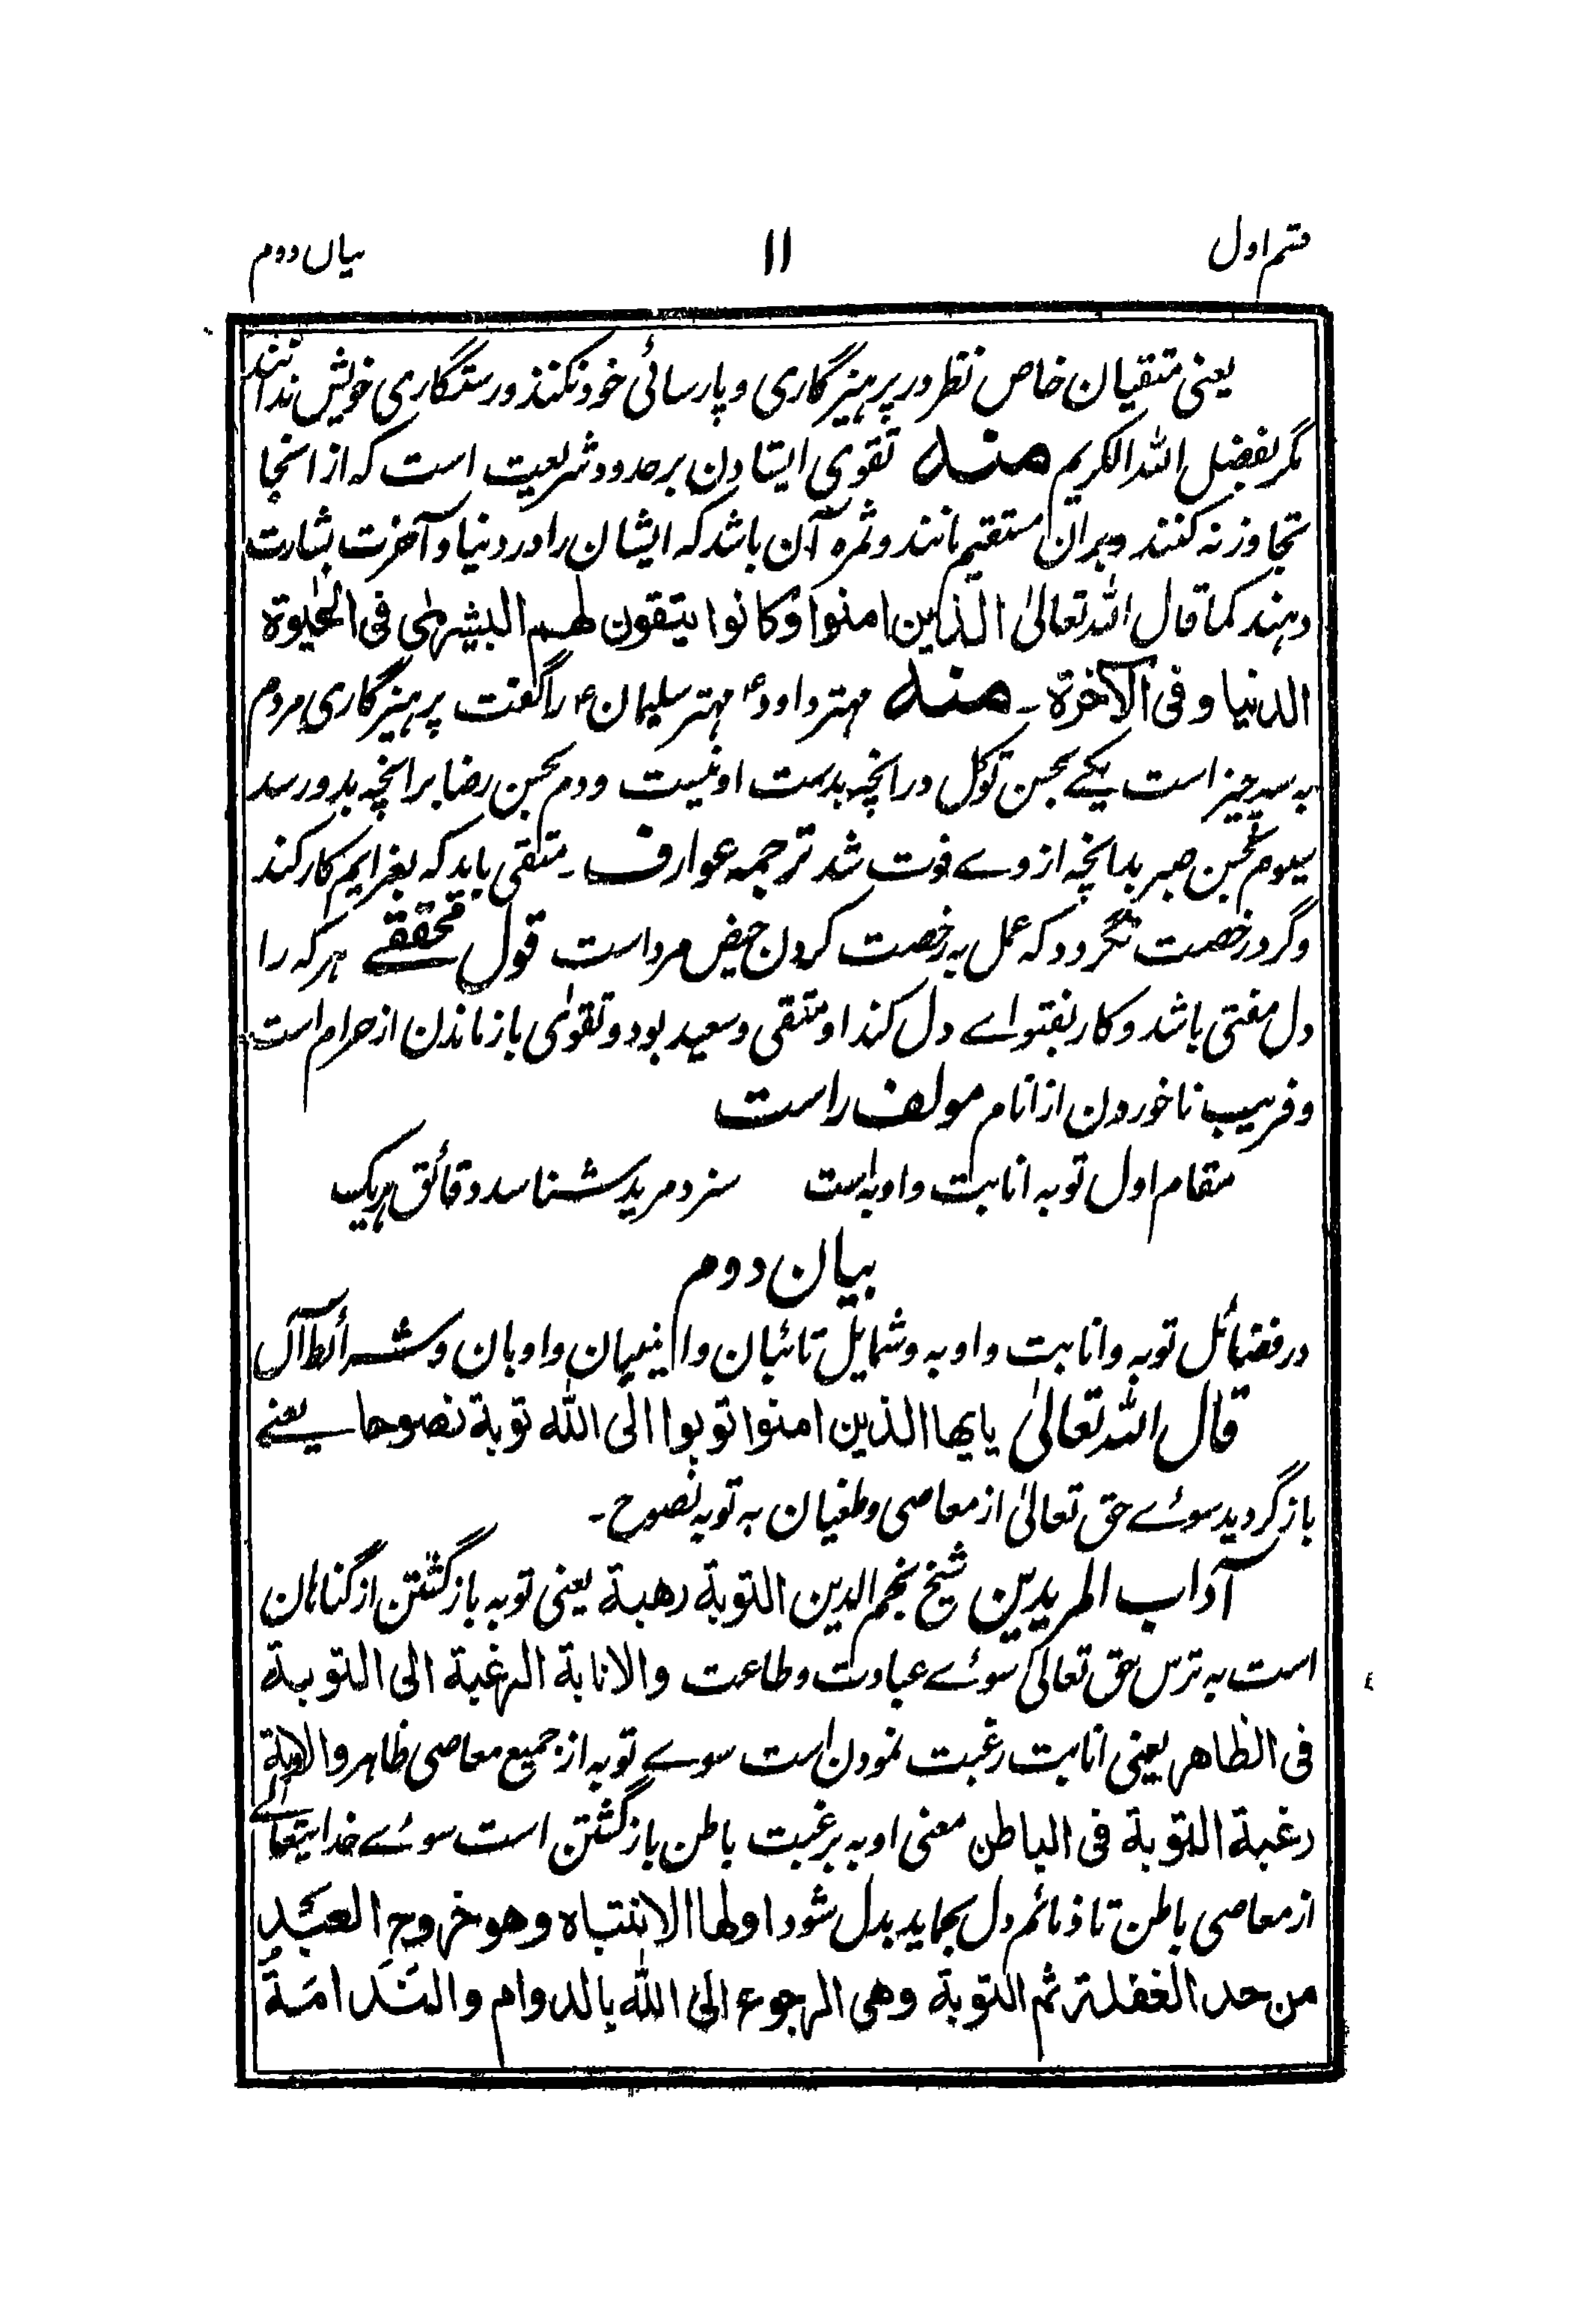 قسم اول
۱۱
بیان دوم
یعنی متقیان خاص نظر در پرهیزگاری و پارسائی خود نکنند و رستگاری خویش ندانند
مگر بفضل الله الکریم منه تقوی ایستادن بر حدود شریعت است که از انجا
تجاوز نه کنند و بران مستقیم مانند و ثمره آن باشد که ایشان را در دنیا و آخرت بشارت
دهند کما قال الله تعالیٰ الذین امنوا وکانوا یتقون لهم البشریٰ فی الحیٰوة
الدنیا و فی الآخرة ۔ منه مهتر داود؏ مهتر سلیمان؏ را گفت پرهیزگاری مردم
به سه چیز است یکے بحسن توکل در انچه بدست او نیست و دوم بحسن رضا بر انچه بدو رسد
سیوم بحسن صبر بدانچه از وے فوت شد ترجمه عوارف ۔ متقی باید که بعزایم کار کند
و گرد رخصت نگردد که عمل به رخصت کردن حیض مرد است قول محققے هر که را
دل مفتی باشد و کار بفتواے دل کند او متقی و سعید بود و تقویٰ باز ماندن از حرام است
و فریب نا خوردن از انام مولف راست
مقام اول توبه انابت و اوبه است سزد مرید شناسد دقائق هریک
بیان دوم
در فضائل توبه و انابت و اوبه و شمایل تائبان و انیبان و اوبان و شرائط آن
قال الله تعالیٰ یایها الذین امنوا توبوا الی الله توبة نصوحا یعنے
باز گردید سوئے حق تعالیٰ از معاصی و طغیان به توبه نصوح ۔
آداب المریدین شیخ نجم الدین التوبة رهبة یعنی توبه باز گشتن از گناهان
است به ترس حق تعالیٰ سوئے عبادت و طاعت والانابة الرغبة الی التوبة
فی الظاهر یعنی انابت رغبت نمودن است سوے توبه از جمیع معاصی ظاهر والاوبة
رغبة التوبة فی الباطن معنی اوبه برغبت باطن باز گشتن است سوئے خدایتعالےٰ
از معاصی باطن تا ذمائم دل بحماید بدل شود اولها الانتباه وهو خروج العبد
من حد الغفلة ثم التوبة وهی الرجوع الی الله بالدوام والندامة